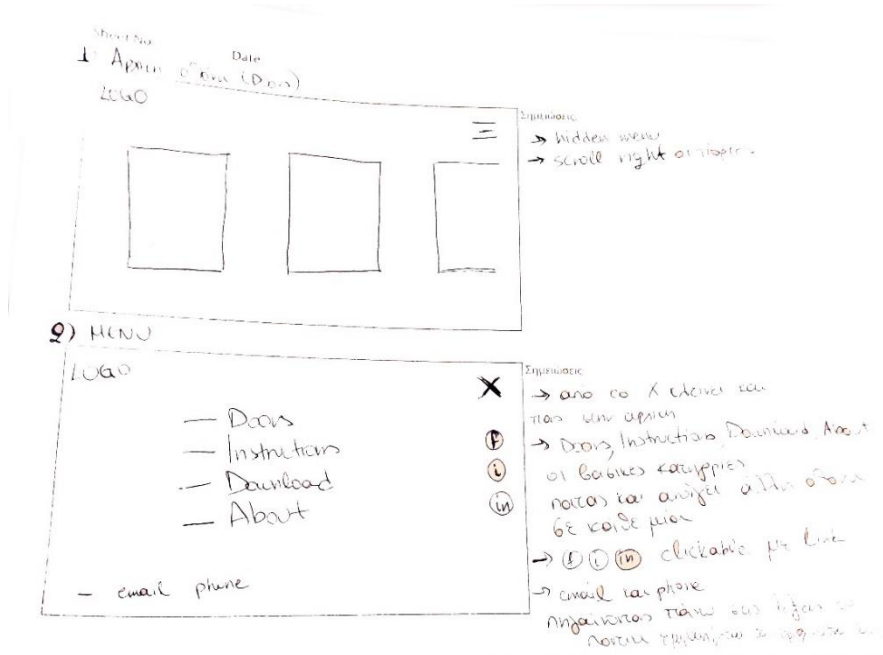 Sheet No
Date
1. Αρχική οθόνη (Doors)
LOGO
Σημειώσεις
→ hidden menu
→ scroll right οι πόρτες
2) MENU
LOGO
X
— Doors
— Instructions
— Download
— About
f
i
in
— email phone
Σημειώσεις
→ απο το X κλεινει και
πας στην αρχικη
→ Doors, Instructions, Download, About
οι βασικες κατηγοριες
πατας και ανοιγει αλλη οθονη
σε καθε μια
→ f i in clickable με link
→ email και phone
πηγαίνοντας πάνω στις λέξεις